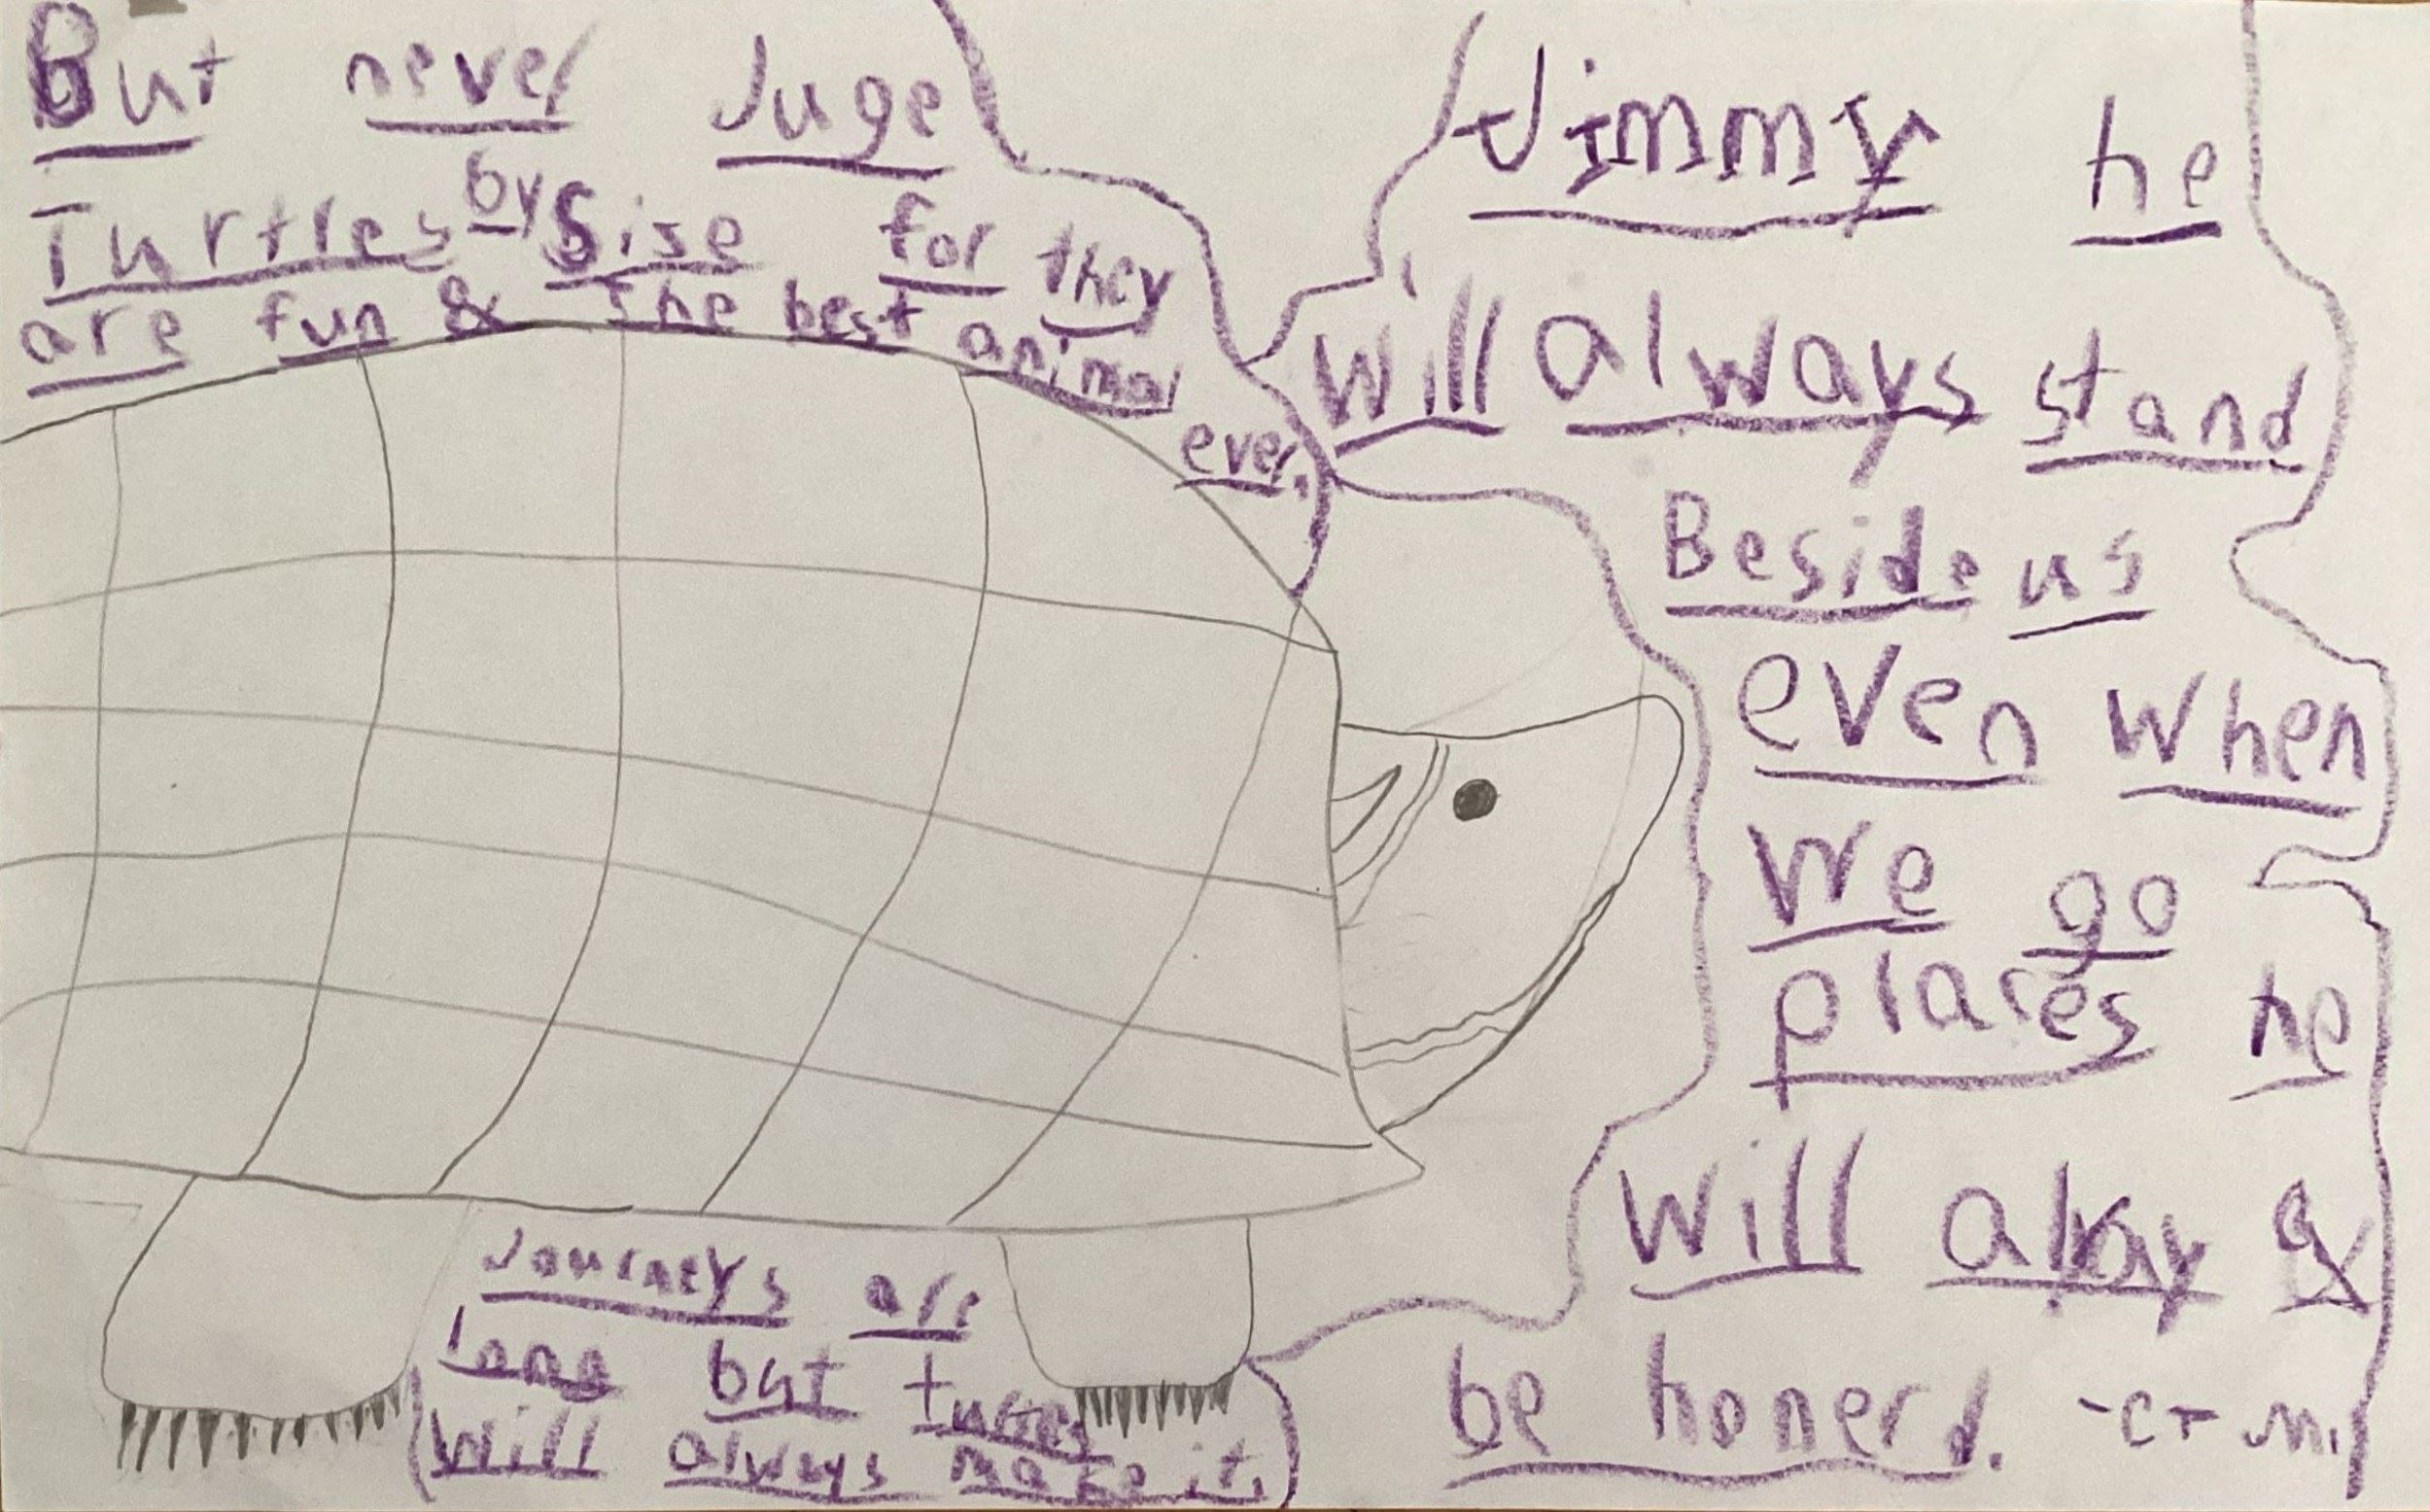 But never Juge
Turtles by Sise for they
are fun & the best animal
ever.
Jimmy he
will always stand
Beside us
even when
We go
places he
will alway &
be honerd. -C+M.
Journeys are
long but turtles
will always make it.